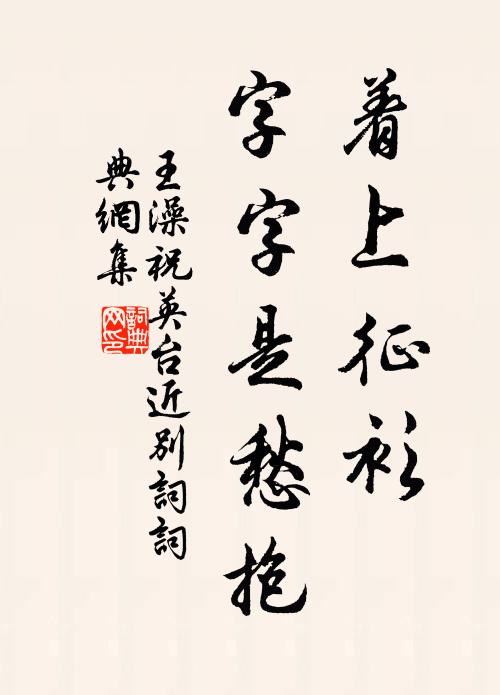 着上征衫
字字是愁抱
王澡祝英台近别詞詞
典網集
詞典
网印